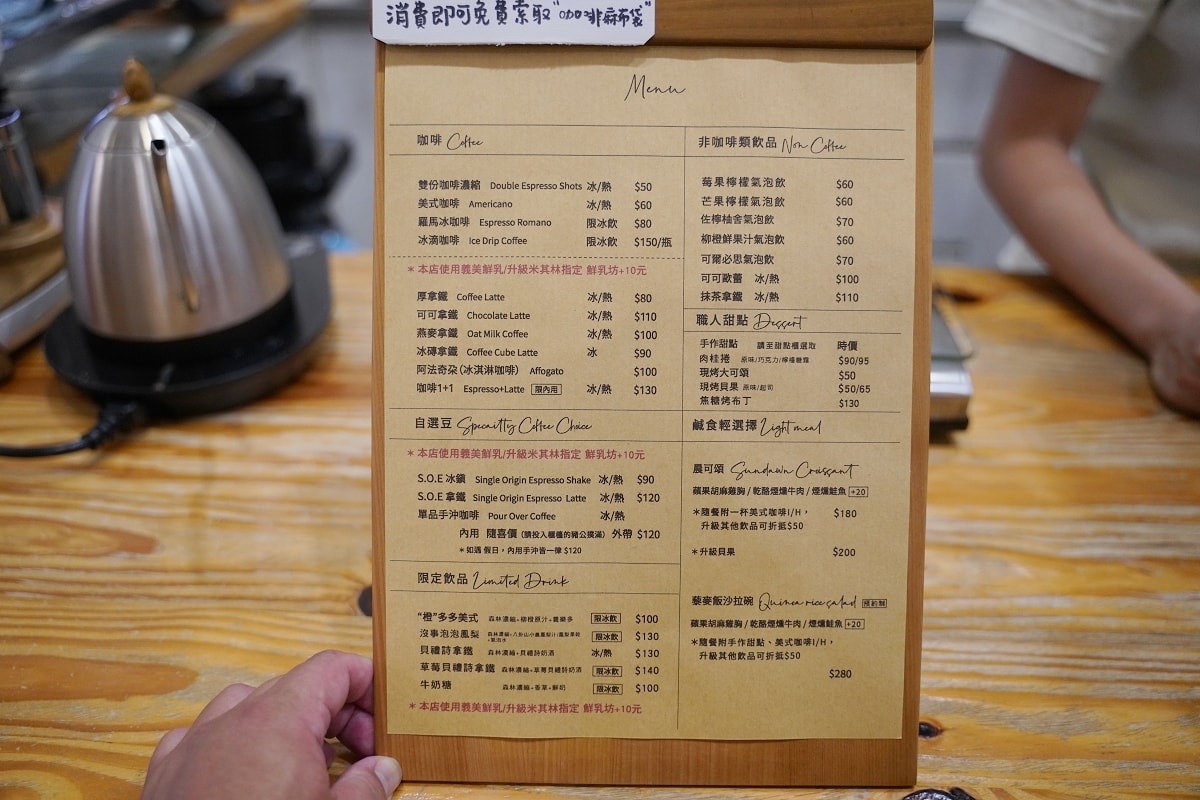 消費即可免費索取"咖啡麻布袋"
Menu
咖啡 Coffee
雙份咖啡濃縮 Double Espresso Shots 冰/熱 $50
美式咖啡 Americano 冰/熱 $60
羅馬冰咖啡 Espresso Romano 限冰飲 $80
冰滴咖啡 Ice Drip Coffee 限冰飲 $150/瓶
*本店使用義美鮮乳/升級米其林指定 鮮乳坊+10元
厚拿鐵 Coffee Latte 冰/熱 $80
可可拿鐵 Chocolate Latte 冰/熱 $110
燕麥拿鐵 Oat Milk Coffee 冰/熱 $100
冰磚拿鐵 Coffee Cube Latte 冰 $90
阿法奇朶(冰淇淋咖啡) Affogato $100
咖啡1+1 Espresso+Latte 限內用 冰/熱 $130
自選豆 Specailty Coffee Choice
*本店使用義美鮮乳/升級米其林指定 鮮乳坊+10元
S.O.E 冰鎮 Single Origin Espresso Shake 冰/熱 $90
S.O.E 拿鐵 Single Origin Espresso Latte 冰/熱 $120
單品手沖咖啡 Pour Over Coffee 冰/熱
內用 隨喜價 (請投入櫃檯的豬公撲滿) 外帶 $120
*如遇 假日,內用手沖皆一律 $120
限定飲品 Limited Drink
"橙"多多美式 森林濃縮+柳橙原汁+養樂多 限冰飲 $100
沒事泡泡鳳梨 限冰飲 $130
貝禮詩拿鐵 森林濃縮+貝禮詩奶酒 冰/熱 $130
草莓貝禮詩拿鐵 森林濃縮+草莓貝禮詩奶酒 限冰飲 $140
牛奶糖 森林濃縮+香草+鮮奶 限冰飲 $100
*本店使用義美鮮乳/升級米其林指定 鮮乳坊+10元
非咖啡類飲品 Non Coffee
莓果檸檬氣泡飲 $60
芒果檸檬氣泡飲 $60
佐檸柚舍氣泡飲 $70
柳橙鮮果汁氣泡飲 $60
可爾必思氣泡飲 $70
可可歐蕾 冰/熱 $100
抹茶拿鐵 冰/熱 $110
職人甜點 Dessert
手作甜點 請至甜點櫃選取 時價
肉桂捲 原味/巧克力/檸檬糖霜 $90/95
現烤大可頌 $50
現烤貝果 原味/起司 $50/65
焦糖烤布丁 $130
鹹食輕選擇 Light meal
晨可頌 Sundawn Croissant
蘋果胡麻雞胸 / 乾酪煙燻牛肉 / 煙燻鮭魚 +20
*隨餐附一杯美式咖啡I/H, $180
升級其他飲品可折抵$50
*升級貝果 $200
藜麥飯沙拉碗 Quinoa rice salad 預約制
蘋果胡麻雞胸 / 乾酪煙燻牛肉 / 煙燻鮭魚 +20
*隨餐附手作甜點、美式咖啡I/H,
升級其他飲品可折抵$50
$280